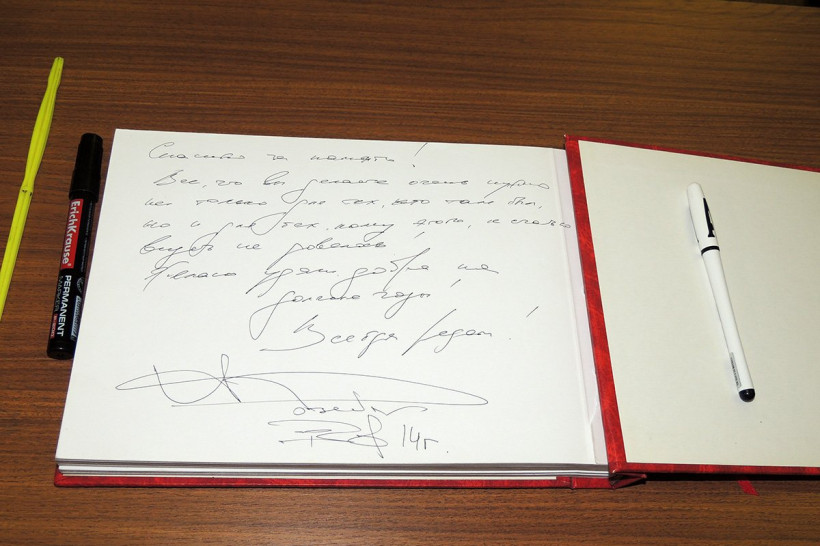 Спасибо за память!
Все, что вы делаете очень нужно
не только для тех, кто там был,
но и для тех, кому этого, к счастью
видеть не довелось!
Желаю удачи, добра на
долгие годы!
Всегда рядом!
14г.
ErichKrause
PERMANENT
MARKER